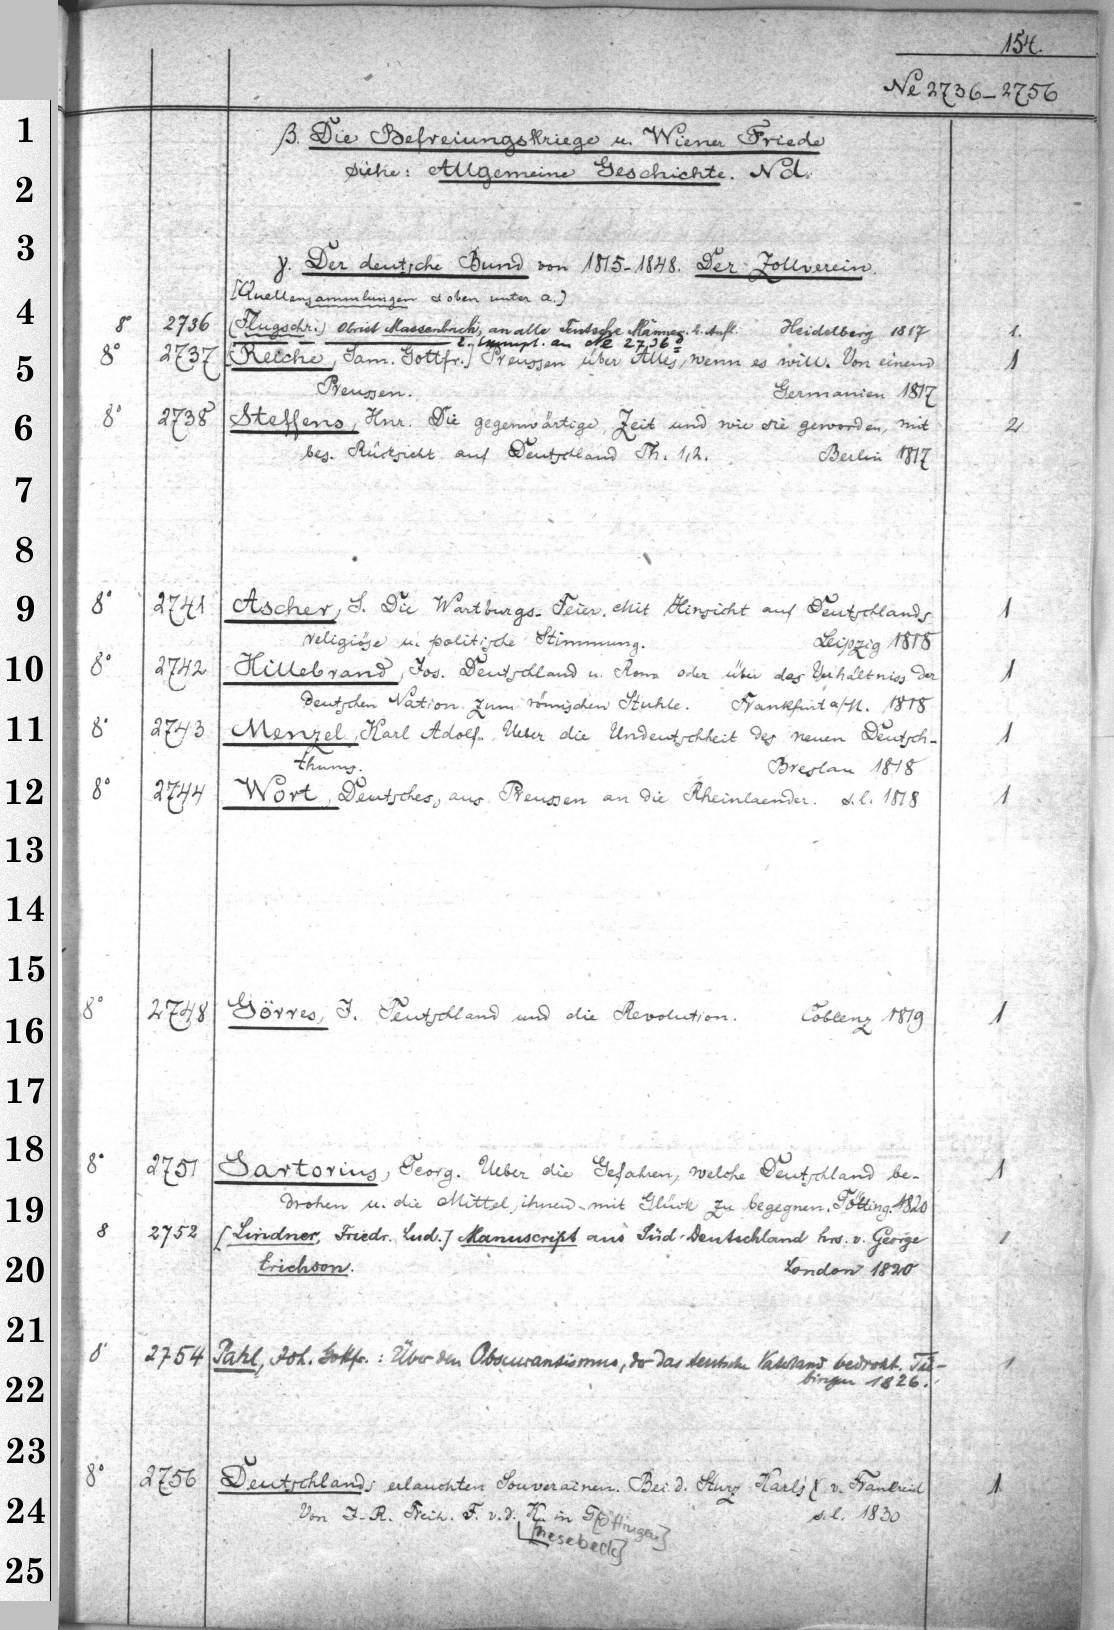 154.
No 2736-2756
1
β. Die Befreiungskriege u. Wiener Friede
2
Siehe: Allgemeine Geschichte. Nd.
3
γ. Der deutsche Bund von 1815-1848. Der Zollverein.
[Quellensammlungen s. oben unter a.]
4
8° 2736 (Flugschr.) Obrist Massenbach, an alle Teutsche Männer. 2. Aufl. Heidelberg 1817 1.
an No 2736
5
8° 2737 [Reiche, Sam. Gottfr.] Preussen über Alles, wenn es will. Von einem 1
Preussen. Germanien 1817
6
8° 2738 Steffens, Hnr. Die gegenwärtige Zeit und wie sie geworden, mit 2
bes. Rücksicht auf Deutschland Th. 1,2. Berlin 1817
7
8
9
8° 2741 Ascher, S. Die Wartburgs-Feier. Mit Hinsicht auf Deutschlands 1
religiöse u. politische Stimmung. Leipzig 1818
10
8° 2742 Hillebrand, Jos. Deutschland u. Rom oder über das Verhältniss der 1
deutschen Nation zum römischen Stuhle. Frankfurt a/M. 1818
11
8° 2743 Menzel, Karl Adolf. Ueber die Undeutschheit des neuen Deutsch- 1
thums. Breslau 1818
12
8° 2744 Wort, Deutsches, aus Preussen an die Rheinlaender. s.l. 1818 1
13
14
15
16
8° 2748 Görres, J. Teutschland und die Revolution. Coblenz 1819 1
17
18
8° 2751 Sartorius, Georg. Ueber die Gefahren, welche Deutschland be- 1
19
drohen u. die Mittel, ihnen mit Glück zu begegnen. Götting. 1820
8 2752 [Lindner, Friedr. Lud.] Manuscript aus Süd-Deutschland hrs. v. George 1
20
Erichson. London 1820
21
8° 2754 Pahl, Joh. Gottfr.: Über den Obscurantismus, der das deutsche Vaterland bedroht. Tü- 1
22
bingen 1826.
23
8° 2756 Deutschlands erlauchten Souverainen. Bei d. Sturz Karls X v. Frankreich 1
24
Von J. R. Freih. F. v. d. K. in G[öttingen] s.l. 1830
[Knesebeck]
25